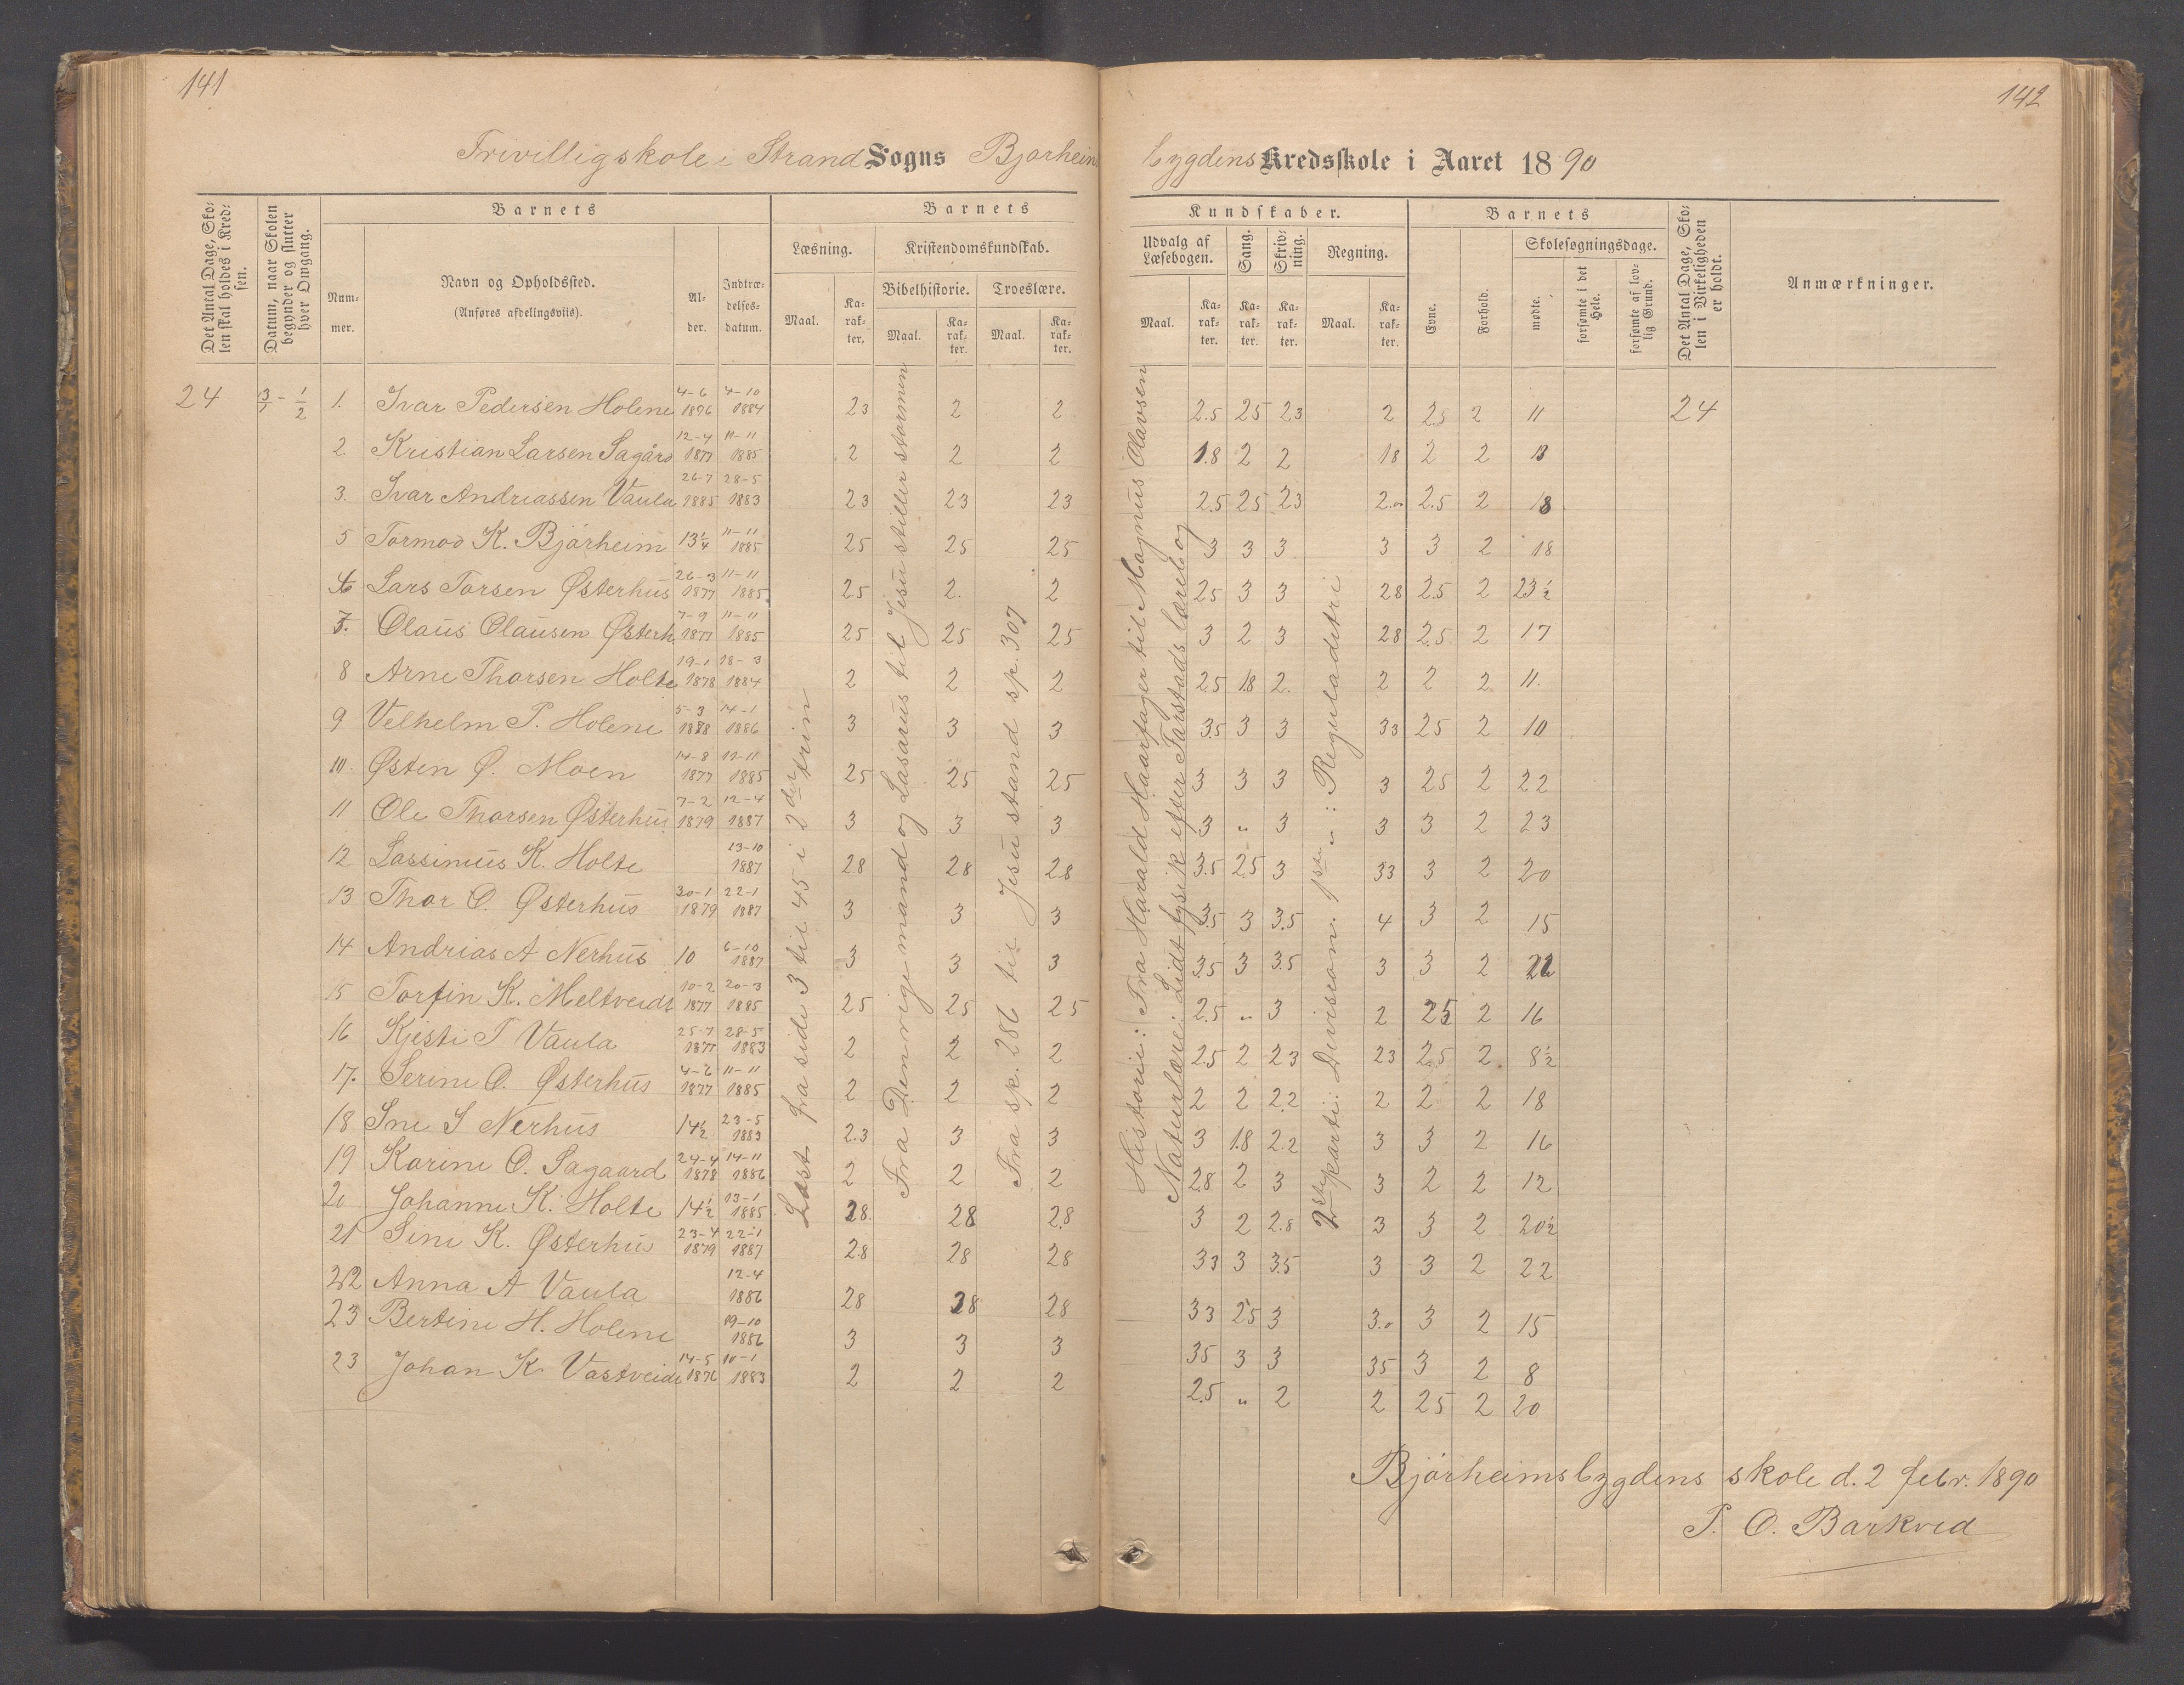 141
142
Frivilligskole i Strand Sogns Bjørheims
bygdens Kredsskole i Aaret 1890
Det Antal Dage, Skolen skal holdes i Kredsen.
Datum, naar Skolen begynder og slutter hver Omgang.
Barnets
Barnets
Kundskaber.
Barnets
Det Antal Dage, Skolen i Virkeligheden er holdt.
Anmærkninger.
Nummer.
Navn og Opholdssted.
(Anføres afdelingsviis).
Alder.
Indtrædelsesdatum.
Læsning.
Kristendomskundskab.
Bibelhistorie.
Troeslære.
Udvalg af Læsebogen.
Sang.
Skrivning.
Regning.
Evne.
Forhold.
Skolesøgningsdage.
mødte.
forsømte i det Hele.
forsømte af lovlig Grund.
Maal. Karakter. Maal. Karakter. Maal. Karakter. Maal. Karakter. Karakter. Karakter. Maal. Karakter.
24 3/1 - 1/2 1. Ivar Pedersen Holene 4-6 1876 4-10 1884 23 2 2 2.5 25 23 2 2.5 2 11 24
2. Kristian Larsen Sagård 12-4 1877 11-11 1885 2 2 2 1.8 2 2 18 2 2 13
3. Ivar Andreassen Vaula 26-7 1885 28-5 1883 23 23 23 2.5 25 23 2.0 2.5 2 18
5 Tormod K. Bjørheim 13 1/4 11-11 1885 25 25 25 3 3 3 3 3 2 18
6 Lars Torsen Østerhus 26-3 1877 11-11 1885 25 2. 2 25 3 3 28 2.5 2 23 1/2
7. Olaus Olausen Østerh 7-9 1877 11-11 1885 25 25 25 3 2 3 28 2.5 2 17
8 Arne Thorsen Holte 19-1 1878 18-3 1884 2 2 2 2.5 18 2. 2 2 2 11.
9 Velhelm P. Holene 5-3 1888 14-1 1886 3 3 3 3.5 3 3 33 25 2 10
10. Østen Ø. Moen 14-8 1877 11-11 1885 25 25 25 3 3 3 3 25 2 22
11 Ole Thorsen Østerhus 7-2 1879 12-4 1887 3 3 3 3 " 3 3 3 2 23
12 Lassinius K. Holte 13-10 1887 28 28 28 3.5 2.5 3 33 3 2 20
13 Thor O. Østerhus 30-1 1879 22-1 1887 3 3 3 3.5 3 3.5 4 3 2 15
14 Andrias A Nerhus 10 6-10 1887 3 3 3 3.5 3 3.5 3 3 2 22
15 Torfin K. Meltveidt 10-2 1877 20-3 1885 25 25 25 2.5 " 3 2 25 2 16
16 Kjesti T Vaula 25-7 1877 28-5 1883 2 2 2 2.5 2 23 23 2.5 2 8 1/2
17. Serine O. Østerhus 4-6 1877 11-11 1885 2 2 2 2 2 2.2 2 2 2 18
18 Ine I Nerhus 14 1/2 23-5 1883 2.3 3 3 3 1.8 2.2 3 3 2 16
19 Karine O. Sagaard 24-4 1878 14-11 1886 2 2 2 28 2 3 3 2 2 12
20 Johanne K. Holte 14 1/2 13-1 1885 28. 28 2.8 3 2 2.8 3 3 2 20 1/2
21 Sine K. Østerhus 23-4 1879 22-1 1887 2.8 28 28 33 3 3.5 3 3 2 22
22 Anna A Vaula 12-4 1886 28 28 28 33 25 3 3.0 3 2 15
23 Bertine H. Holene 19-10 1886 3 3 3 35 3 3 35 3 2 8
23 Johan K. Vastveidt 14-5 1876 10-1 1883 2 2 2 2.5 " 2 2 25 2 20
Læst fra side 3 til 45 i 2den trin
Fra Den rige mand og Lasarus til Jesu stiller stormen
Fra sp. 286 til Jesu stand sp. 307
Historie: Fra Harald Haarfager til Magnus Olavsen
Naturlære: Lidt fysik efter Farstads lærebog
2det parti: Divison. 1ste ": Reguladetri
Bjørheimsbygdens skole d. 2 febr. 1890
P. O. Barkved